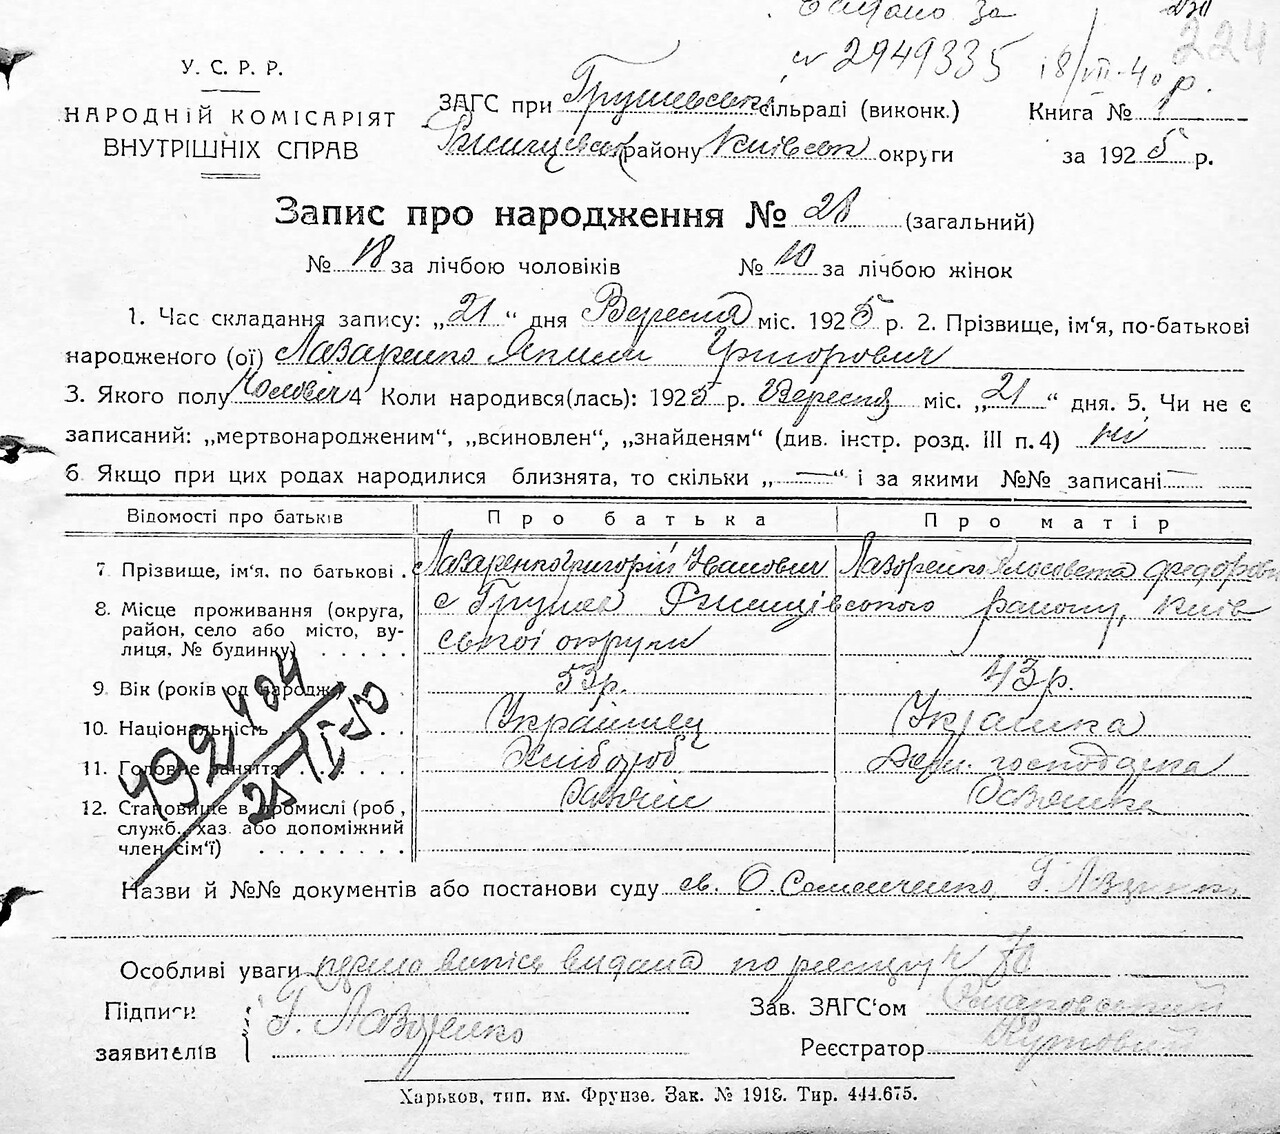 за 230
№ 2949335 18/VII-40 р. 224
У. С. Р. Р.
НАРОДНІЙ КОМІСАРІЯТ
ВНУТРІШНІХ СПРАВ
ЗАГС при Грушевській сільраді (виконк.)
району Київськ округи
Книга №
за 1925 р.
Запис про народження № 28 (загальний)
№ 18 за лічбою чоловіків № 10 за лічбою жінок
1. Час складання запису: „21“ дня Вересня міс. 1925 р. 2. Прізвище, ім'я, по-батькові
народженого (ої) Лазаренко Григорович
3. Якого полу Чоловіч 4 Коли народився(лась): 1925 р. Вересня міс. „21“ дня. 5. Чи не є
записаний: „мертвонародженим“, „всиновлен“, „знайденям“ (див. інстр. розд. III п. 4) ні
6 Якщо при цих родах народилися близнята, то скільки „—“ і за якими №№ записані —
Відомості про батьків Про батька Про матір
7 Прізвище, ім'я, по батькові . Лазаренко Григорій Іванович Лазоренко Федоровна
8. Місце проживання (округа, район, село або місто, вулиця, № будинку) . . . . . с Грушев Ржищівського району, Київ
ської округи
9. Вік (років од народж) 53 р. 43 р.
10. Національність . . Українец Украинка
11. Головне заняття . . . . . . Хлібороб господарка
12. Становище в промислі (роб,
служб, хаз або допоміжний
член сім'ї) . . . . . . . .
492404
25/IX-50
Назви й №№ документів або постанови суду св. О. Семенченко,
Особливі уваги перша випісь видана по реєстру № 70
Підписи
заявителів
Г. Лазоренко
Зав. ЗАГС'ом
Реєстратор
Харьков, тип. им. Фрунзе. Зак. № 1918. Тир. 444.675.